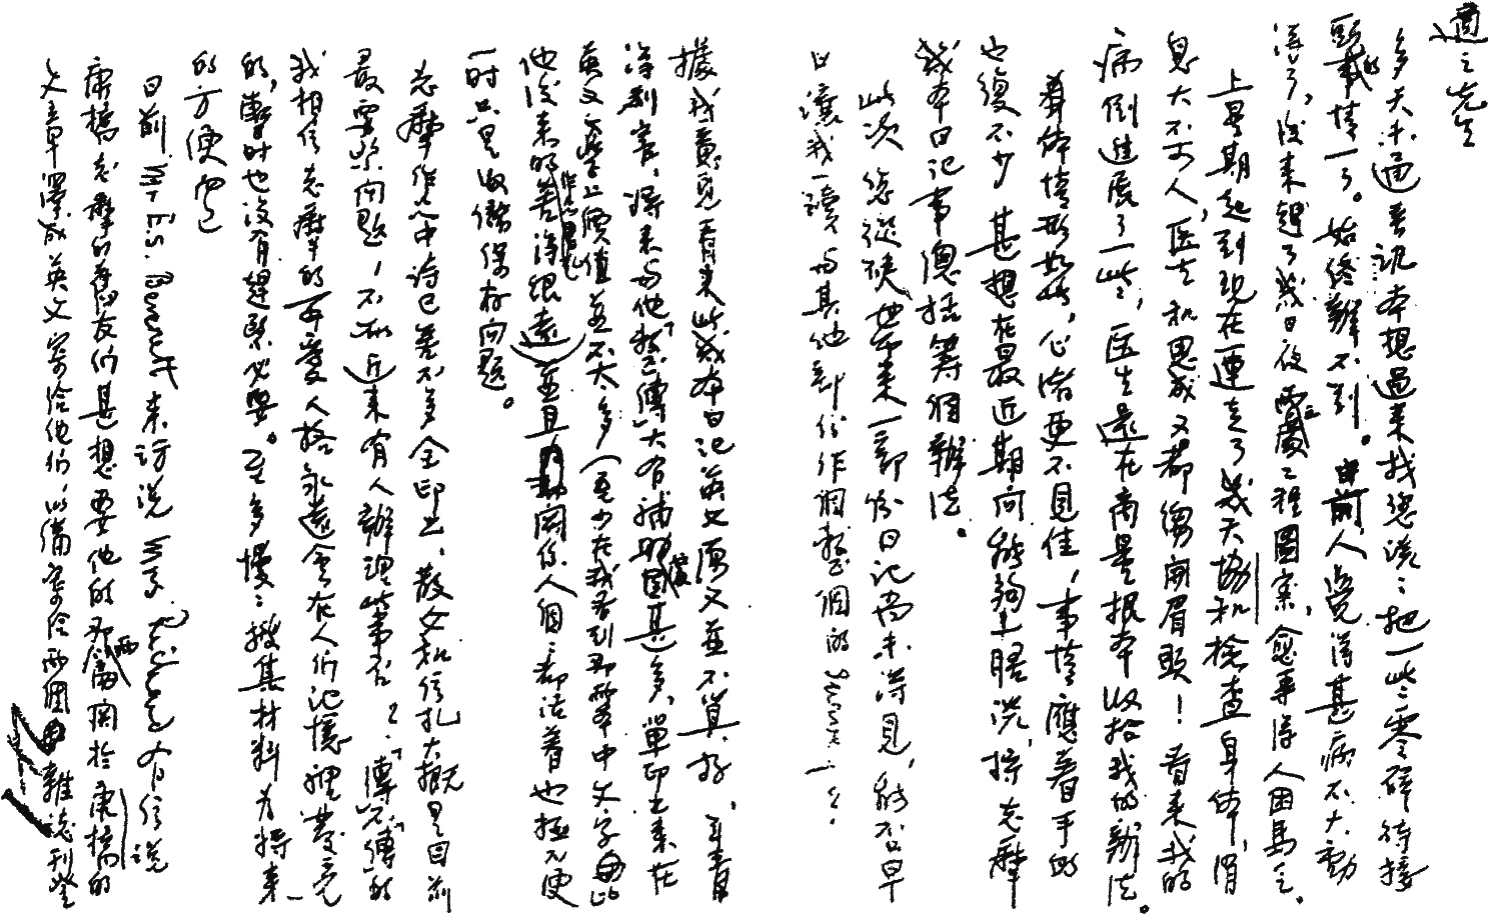 適之先生
多天未通音訊本想過来找您談談把一些零碎待接
頭的事情一了。始終辦不到。日前,人覺得甚病不大動
得了,後来趕了幾日夜兩三處工程圖案,愈事得人困馬乏。
上星期起到現在一連走了幾天協和檢查身体,消
息大不可人,医生和思成又都縐開眉頭!看来我的
病倒進展了一些,医生還在商量根本收拾我的辦法。
身体情形如此,心緒更不見佳,事情應着手的
也復不少,甚想在最近期间能夠一晤談,將志摩
幾本日記事總括籌個辦法。
此次,您從硤帶来一部份日記尚未得見,能否早
日讓我一讀與其他部份作個整個的
據我意見看来此幾本日記英文原文並不算好,年青
得利害,將来與他「整傳」大有補助處固甚多,單印出来在
英文文學上價值並不太多(至少在我看到那兩本中文字比
他後来的作品書札差得很遠)並且關係人個個都活着也極不便
一时只是收儲保存问题。
志摩作品中詩已差不多全印出,散文和信札大概是目前
最要緊问题,不知近来有人辦理此事否?「傳」不「傳」的
我相信志摩的可愛人格永遠會在人们記憶裡發亮
的,暂时也没有趕緊必要。至多慢慢搜集材料为將来
的方便而已
日前 Mr. E.S. Bennett 来訪說 Mrs. 有信說
康橋志摩的舊友们甚想要他的那兩篇関於康橋的
文章譯成英文寄给他们,以備寄给兩個雜誌刊登